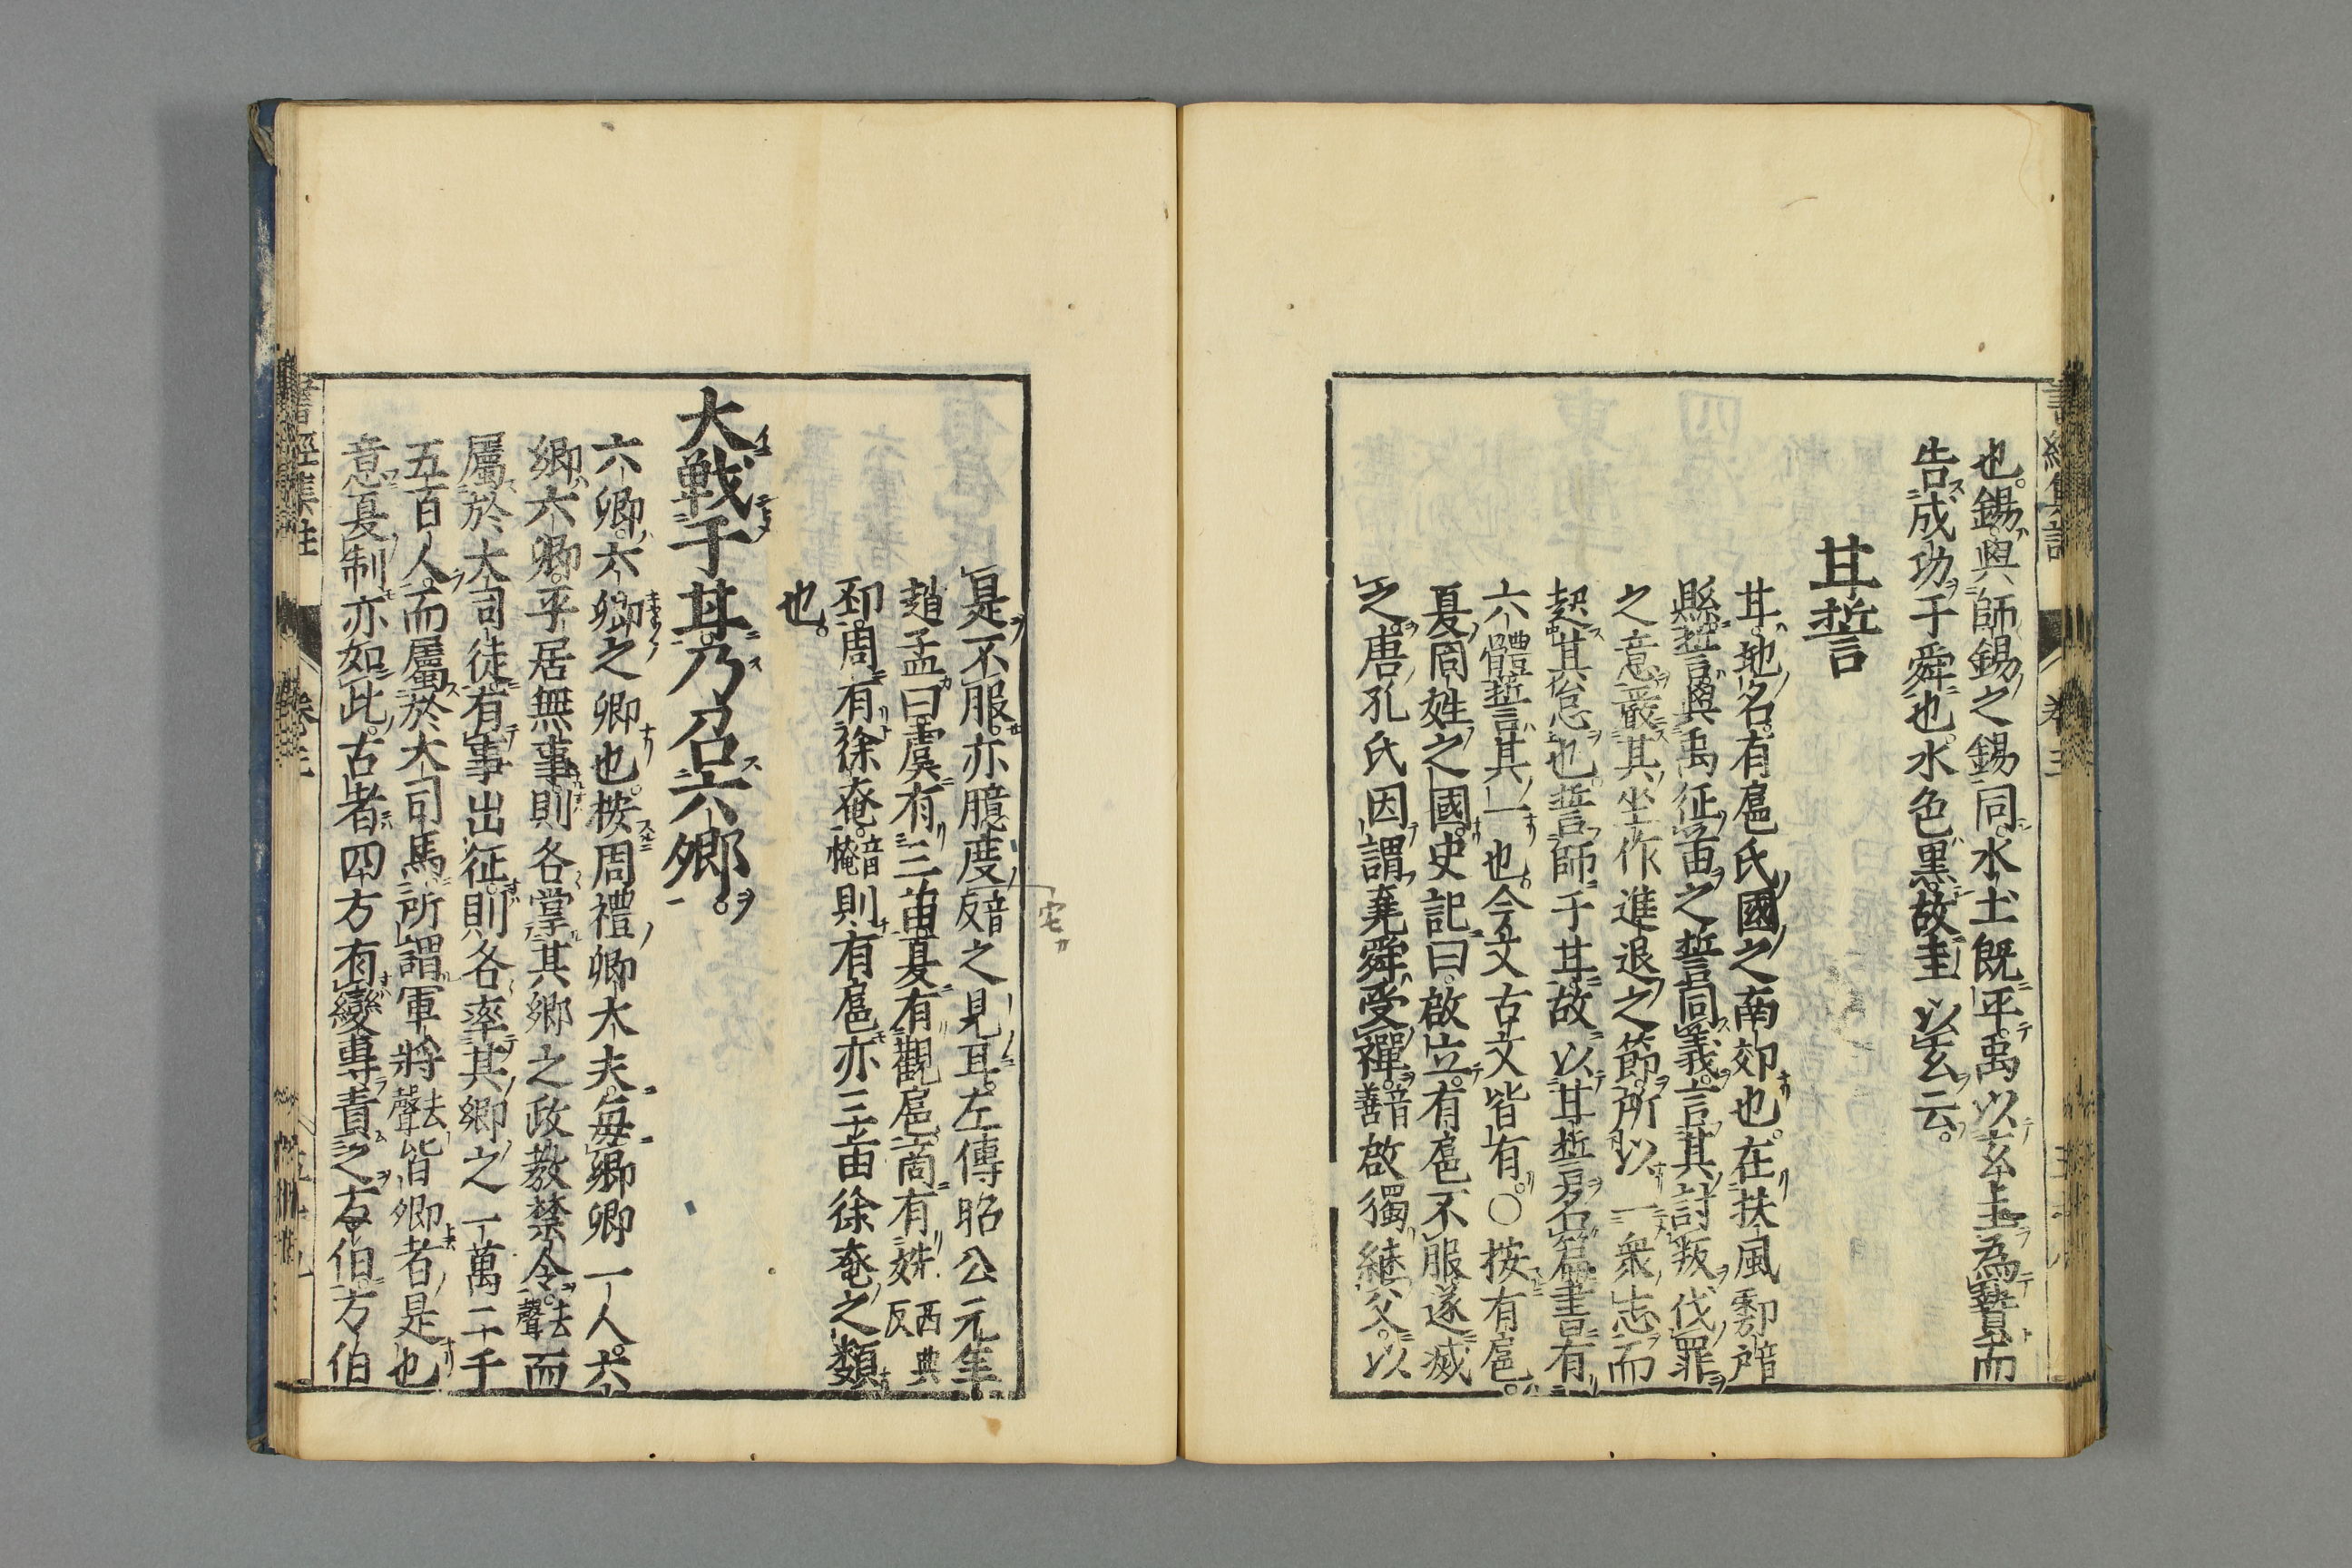 也。錫與師錫之錫同。水土既平。禹以玄圭為贄而
告成功于舜也。水色黒。故圭以玄云。
甘誓
甘。地名。有扈氏國之南郊也。在扶風鄠音戸
縣。誓與禹征苗之誓同義。言其討叛伐罪
之意嚴其坐作進退之節。所以一衆志而
起其怠也。誓師于甘。故以甘誓名篇。書有
六體。誓其一也。今文古文皆有。○按有扈。
夏同姓之國。史記曰。啟立。有扈不服。遂滅
之。唐孔氏因謂堯舜受禪。音善啟獨継父。以
是不服。亦臆度音之見耳。左傳昭公元年
趙孟曰。虞有三苗。夏有觀扈。商有姺西典反
邳。周有徐奄。音掩則有扈亦三苗徐奄之類
也。
大戦于甘。乃召六卿。
六卿。六郷之卿也。按周禮郷大夫。毎郷卿一人。六
郷六卿。平居無事。則各掌其郷之政教禁令。去聲而
屬於大司徒。有事出征。則各率其郷之一萬二千
五百人。而屬於大司馬。所謂軍将去聲皆卿者是也
意夏制亦如此。古者四方有變專責之方伯。方伯
書經集註
卷三